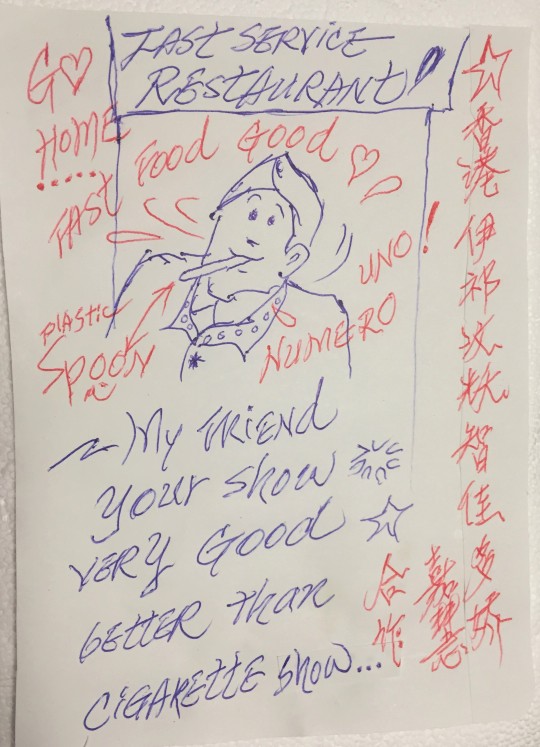 FAST SERVICE
RESTAURANT!
GO
HOME
.....
FAST FOOD GOOD
UNO!
NUMERO
PLASTIC
SPOON
My FRiEND
your show
VERY Good
bETTER than
CiGARETTE show...
香港伊祁
智佳多娇
合作